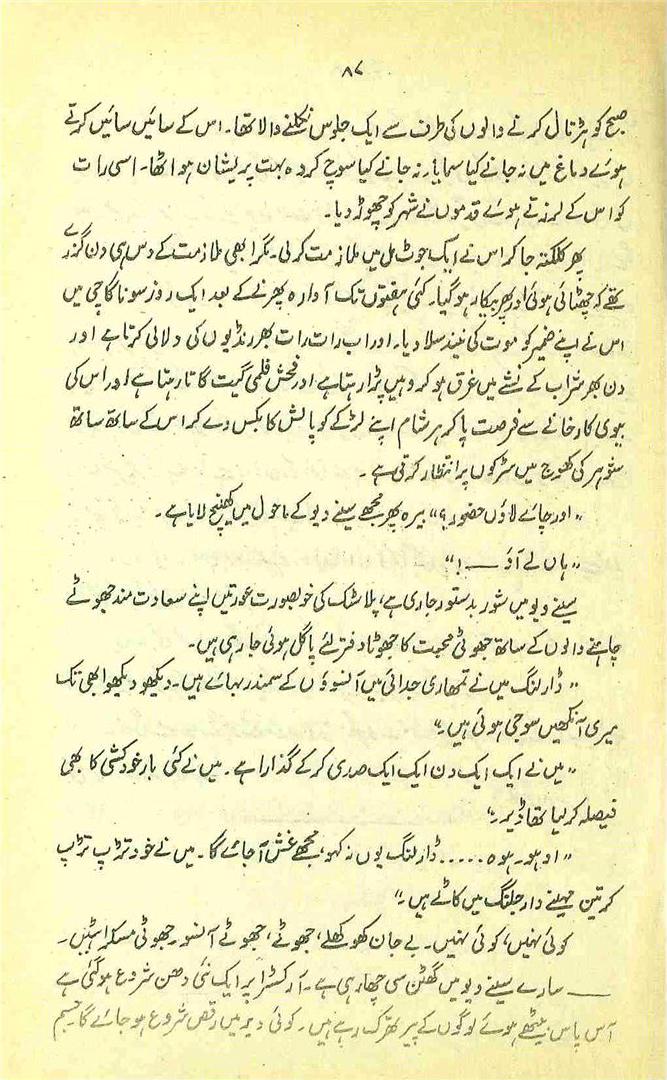 ۸۷
صبح کو ہڑتال کرنے والوں کی طرف سے ایک جلوس نکلنے والا تھا۔ اس کے سائیں سائیں کرتے
ہوئے دماغ میں نہ جانے کیا سمایا، نہ جانے کیا سوچ کر وہ بہت پریشان ہو اٹھا۔ اسی رات
کو اس کے لرزتے ہوئے قدموں نے شہر کو چھوڑ دیا۔
پھر کلکتہ جا کر اس نے ایک جوٹ مل میں ملازمت کر لی۔ مگر ابھی ملازمت کے دس ہی دن گزرے
تھے کہ چھٹائی ہوئی اور پھر بیکار ہو گیا۔ کئی ہفتوں تک آوارہ پھرنے کے بعد ایک روز سونا گاچی میں
اس نے اپنے ضمیر کو موت کی نیند سلا دیا۔ اور اب رات رات بھر رنڈیوں کی دلالی کرتا ہے اور
دن بھر شراب کے نشے میں غرق ہو کر وہیں پڑا رہتا ہے اور فحش فلمی گیت گاتا رہتا ہے اور اس کی
بیوی کارخانے سے فرصت پا کر ہر شام اپنے لڑکے کو پالش کا بکس دے کر اس کے ساتھ ساتھ
شوہر کی کھوج میں سڑکوں پر انتظار کرتی ہے۔
"اور چائے لاؤں حضور؟" بیرہ پھر مجھے سینے ویو کے ماحول میں کھینچ لایا ہے۔
"ہاں لے آؤ ــــ !"
سینے ویو میں شور بدستور جاری ہے، پلاسٹک کی خوبصورت عورتیں اپنے سعادت مند جھوٹے
چاہنے والوں کے ساتھ جھوٹی محبت کا جھوٹا دفتر لئے پاگل ہوئی جا رہی ہیں۔
"ڈارلنگ میں نے تمھاری جدائی میں آنسوؤں کے سمندر بہائے ہیں۔ دیکھو دیکھو ابھی تک
میری آنکھیں سوجی ہوئی ہیں۔"
"میں نے ایک ایک دن ایک ایک صدی کر کے گذارا ہے۔ میں نے کئی بار خودکشی کا بھی
فیصلہ کر لیا تھا ڈیر۔"
"اوہو۔ ہوہ ..... ڈارلنگ یوں نہ کہو، مجھے غش آ جائے گا۔ میں نے خود تڑپ تڑپ
کر تین مہینے دارجلنگ میں کاٹے ہیں۔"
کوئی نہیں، کوئی نہیں۔ بے جان کھوکھلے، جھوٹے، جھوٹے آنسو۔ جھوٹی مسکراہٹیں۔
ــــ سارے سینے ویو میں گھٹن سی چھا رہی ہے۔ آرکسٹرا پر ایک نئی دھن شروع ہو گئی ہے
آس پاس بیٹھے ہوئے لوگوں کے پیر تھرک رہے ہیں۔ کوئی دیر میں رقص شروع ہو جائے گا۔ جسم